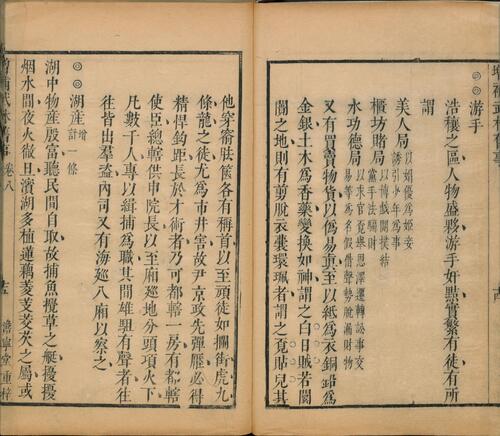 ◎◎游手
浩穰之區人物盛夥游手奸黠實繁有徒有所
謂
美人局 以娼優為姬妾誘引少年為事
櫃坊賭局 以博戲關撲結黨手法騙財
水功德局 以求官覓舉恩澤遷轉訟事交易等為名假借聲勢脫漏財物
又有買賣物貨以偽易真至以紙為衣銅鉛為
金銀土木為香藥變換如神謂之白日賊若闤
闠之地則有剪脫衣囊環珮者謂之覓貼兒其
他穿窬胠篋各有稱首以至頑徒如攔街虎九
條龍之徒尤為市井害故尹京政先彈壓必得
精悍鈎距長於才術者乃可都轄一房有都轄
使臣總轄供申院長以至廂廵地分頭項火下
凡數千人專以緝捕為職其間雄駔有聲者往
往皆出羣盜內司又有海廵八廂以察之
◎◎湖產 增計一條
湖中物產殷富聽民間自取故捕魚攬草之艇擾擾
烟水間夜火徹旦濱湖多植蓮藕菱芰茭芡之屬或
卷八
澹寧堂重梓